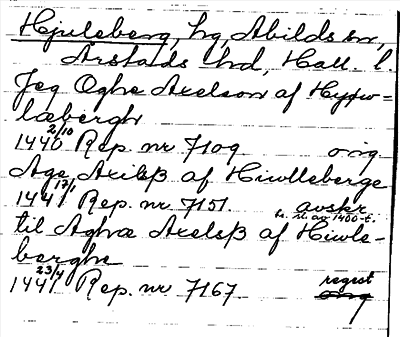 Hjuleberg, hg, Abilds sn,
Årstads hd, Hall. l.
Jeg Oghe Axelson af Hyw=
læbergh
1440 2/10 Rep. nr 7109 orig
Age Axilß af Hiwlleberge
1441 17/1 Rep. nr. 7151. avskr.
sl. av 1400-t.
til Aghæ Axelß af Hiwle-
berghe
1441 23/4 Rep. nr 7167. regest
orig